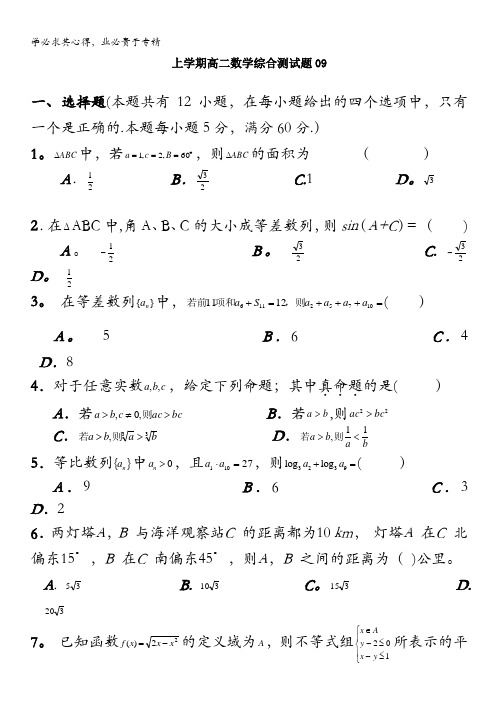 学必求其心得，业必贵于专精
上学期高二数学综合测试题09
一、选择题(本题共有 12 小题，在每小题给出的四个选项中，只有
一个是正确的.本题每小题 5 分，满分 60 分.)
1。 ∆ABC 中，若 a=1, c=2, B=60°，则 ∆ABC 的面积为 ( )
A. 1/2 B. √3/2 C.1 D。√3
2. 在∆ABC 中,角 A、B、C 的大小成等差数列, 则 sin(A+C)= ( )
A。 -1/2 B。 √3/2 C. -√3/2
D。 1/2
3。 在等差数列{aₙ}中，若前11项和a₆+S₁₁=12，则a₂+a₅+a₇+a₁₀=( )
A。 5 B.6 C.4
D.8
4.对于任意实数a,b,c，给定下列命题；其中真命题的是( )
A. 若a>b,c≠0,则ac>bc B. 若a>b,则ac²>bc²
C. 若a>b,则∛a>∛b D. 若a>b,则1/a<1/b
5.等比数列{aₙ}中aₙ>0，且a₁·a₁₀=27，则log₃a₂+log₃a₉=( )
A.9 B.6 C.3
D.2
6.两灯塔A, B 与海洋观察站C 的距离都为10 km, 灯塔A 在C 北
偏东15°, B 在C 南偏东45°, 则A, B 之间的距离为 ( )公里。
A. 5√3 B. 10√3 C。15√3 D.
20√3
7。 已知函数f(x)=√(2x-x²)的定义域为A，则不等式组{x∈A y-2≤0 x-y≤1 所表示的平